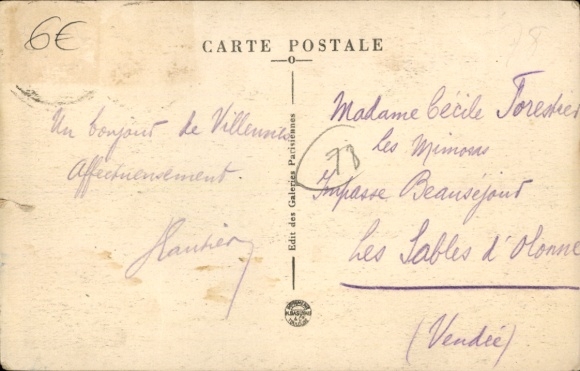 6€
CARTE POSTALE
Un bonjour de
Affectueusement.
Edit des Galeries Parisiennes
78
Madame Cécile Forestier
Les Mimosas
Impasse Beauséjour
Les Sables d'Olonne
(Vendée)